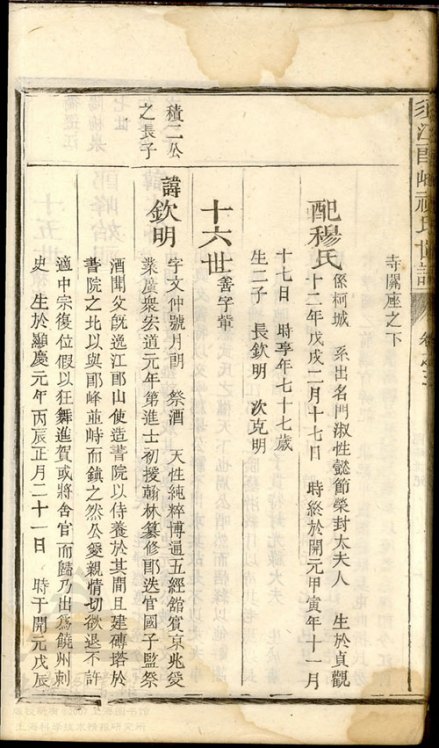 須江郎峰祝氏世譜 卷之三
寺關座之下
配穆氏
係柯城 系出名門淑性懿節榮封太夫人 生於貞觀
十二年戊戌二月十七日 時終於開元甲寅年十一月
十七日 時享年七十七歲
生二子 長欽明 次克明
十六世
善字輩
積二公
之長子
諱欽明
字文仲號月朗 祭酒 天性純粹博通五經舘賓京兆愛
業廣衆宏道元年第進士初授翰林纂修郎迭官國子監祭
酒聞父旣逸江郎山使造書院以侍養於其間且建磚塔於
書院之北以與郎峰並峙而鎮之然公愛親情切欲退不許
適中宗復位假以狂舞進賀或將舍官而歸乃出為饒州刺
史 生於顯慶元年丙辰正月二十一日 時于開元戊辰
上海科學技術情報研究所